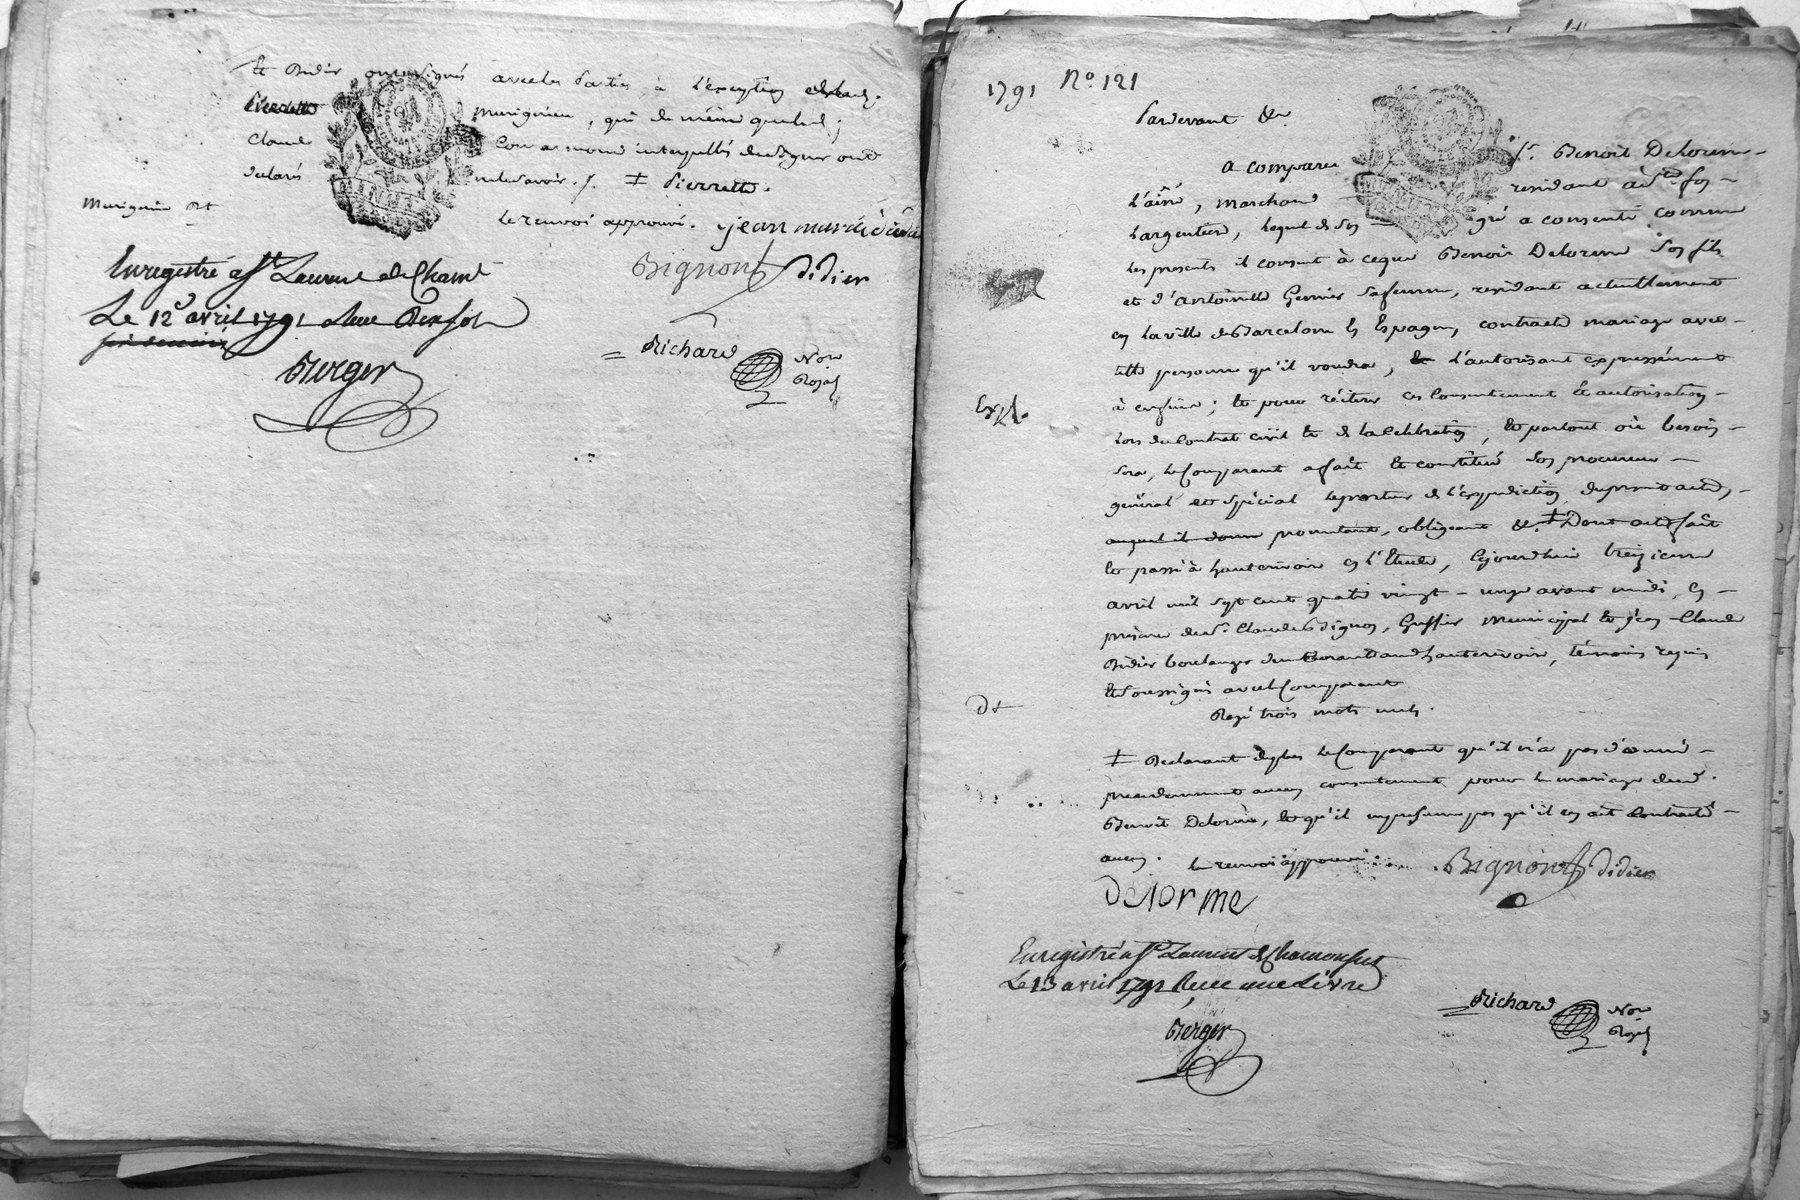 et Didier ont signés avec les parties, à l'exception
Pierrette Murigneu, qui de même que led.
Claude interpellés de signer ont
déclarés ne le savoir. ‡ Pierrette.
le renvoi approuvé. jean
Enregistré a St Laurent de Cham
Bignon Didier
Le 12 avril 1791
Richard Not
Royal
Berger
1791 No. 121
Pardevant &c
A comparu Sr. Benoit Delorme
l'aîné, marchand résidant à St foy
l'argentiere, lequel de son gré a consenti comme
les presents il consent à ceque Benoit Delorme son fils
et d'Antoinette Grenier sa femme, résidant actuellement
en la ville de Barcelone en Espagne, contracte mariage avec
telle personne qu'il voudra, l'autorisant expressément
à ces fins ; et pour réiterer ces consentement et autorisation
Exp.
lors du contrat civil et de la celebration, et partout où besoin
sera, le Comparant a fait et constitué son procureur
général et spécial le porteur de l'expedition du present acte,
auquel il donne promettant, obligeant &c. ‡ Dont acte fait
et passé à hauterivoire en l'Etude, cejourd'hui treizieme
avril mil sept cent quatre vingt-onze avant midi, en
présence de Sr. Claude Bignon, Greffier Municipal et jean Claude
Didier boulanger demeurant aud. hauterivoire, témoins requis
et soussignés avec le Comparant
Rayé trois mots nuls.
‡ Declarant de plus le Comparant qu'il n'a pas donné
précedemment aucun consentement pour le mariage dud.
Benoit Delorme, et qu'il ne presume pas qu'il en ait contracté
aucun. le renvoi approuvé. Bignon Didier
Delorme
Enregistré a St Laurent de Chamousset
Le 13 avril 1791 Reçu une Livre
Richard Not
Royal
Berger